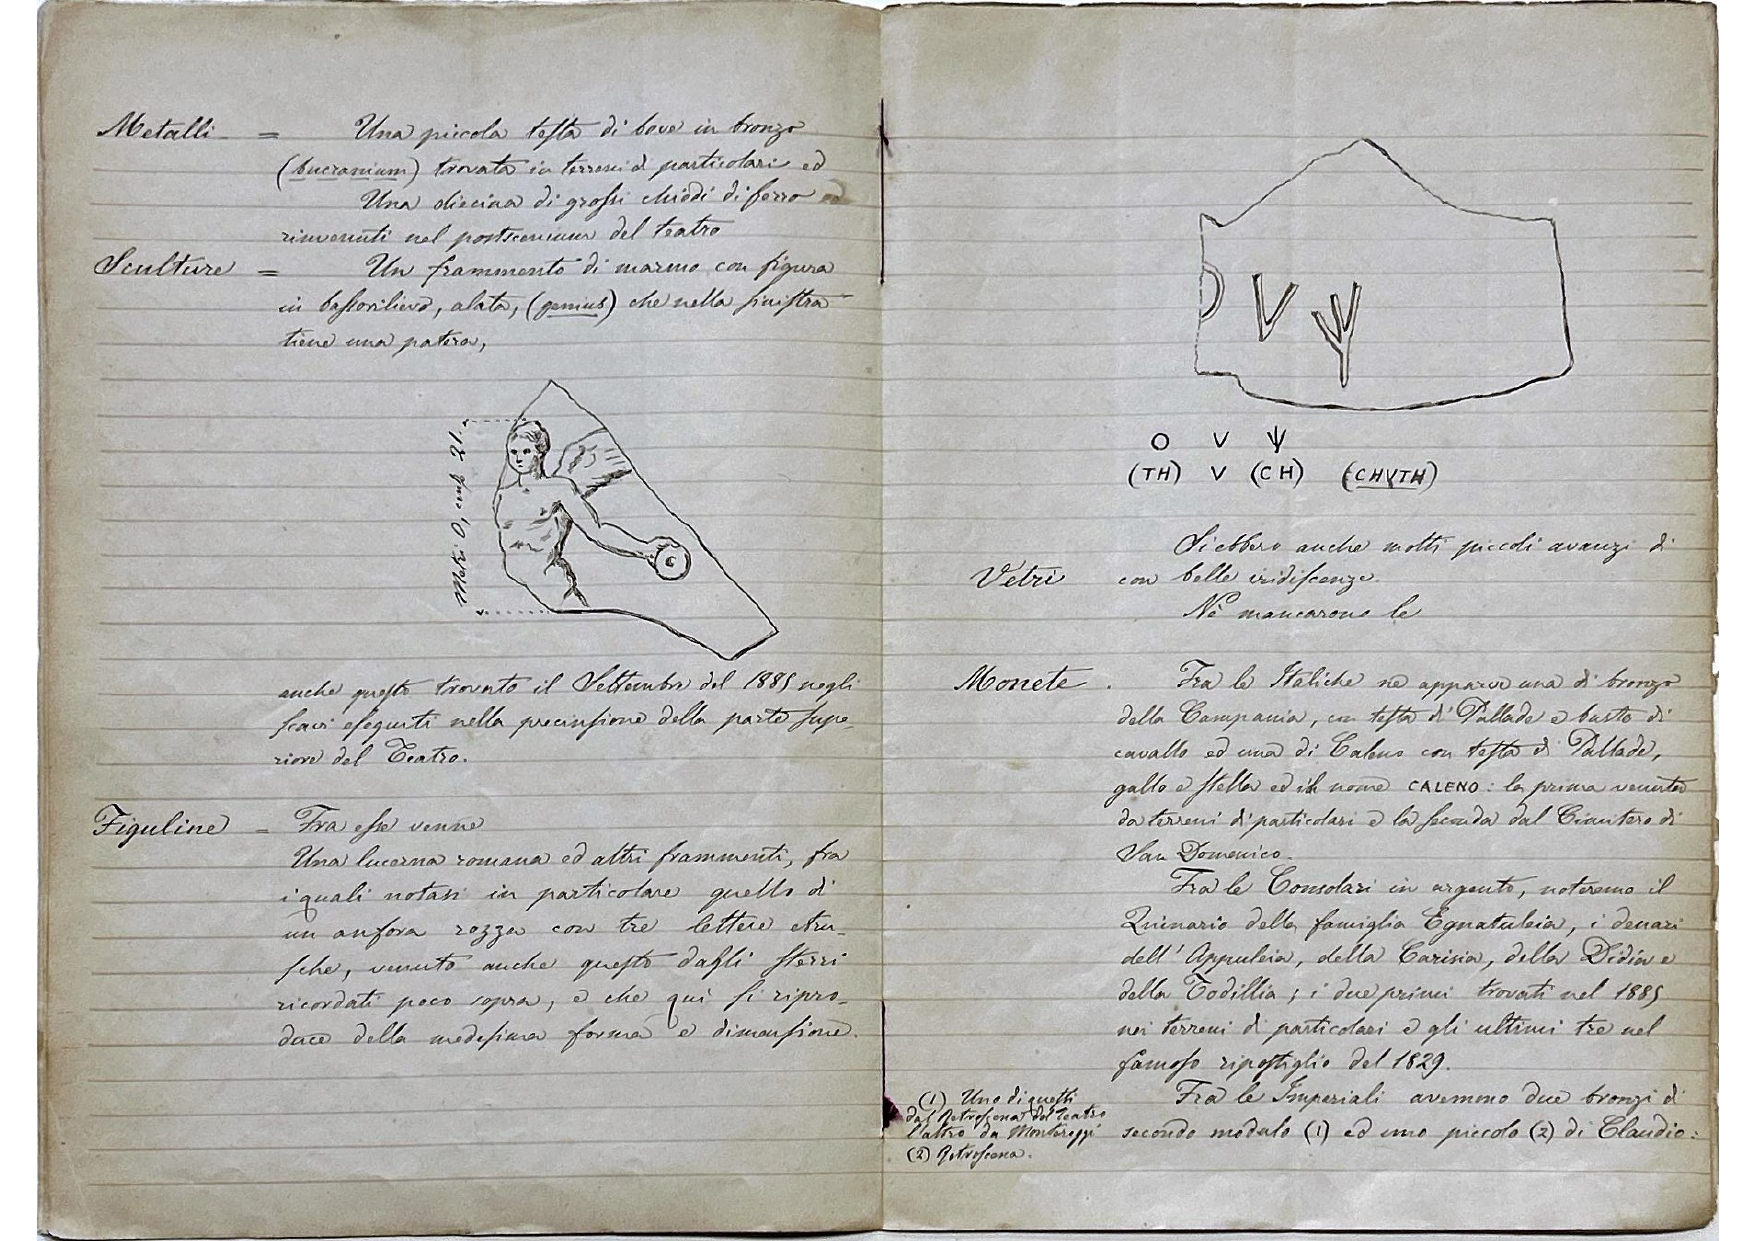 Metalli = Una piccola testa di bove in bronzo
(bucranium) trovata in terreni di particolari ed
Una diecina di grossi chiodi di ferro
rinvenuti nel postscenium del teatro
Sculture = Un frammento di marmo con figura
in bassorilievo, alata, (genius) che nella sinistra
tiene una patera,
Metri 0, cent. 21.
anche questo trovato il Settembre del 1885 negli
scavi eseguiti nella precinsione della parte supe-
riore del Teatro.
Figuline = Fra esse venne
Una lucerna romana ed altri frammenti, fra
i quali notasi in particolare quello di
un anfora rozza con tre lettere etru-
sche, venuto anche questo dagli sterri
ricordati poco sopra, e che quì si ripro-
duce della medesima forma e dimensione.
O V Ψ
(TH) V (CH) (CHVTH)
Si ebbero anche molti piccoli avanzi di
Vetri con belle iridiscenze.
Nè mancarono le
Monete. Fra le Italiche ne apparve una di bronzo
della Campania, con testa di Pallade e busto di
cavallo ed una di Caleno con testa di Pallade,
gallo e stella ed il nome CALENO: la prima venuta
da terreni di particolari e la seconda dal Cimitero di
San Domenico.
Fra le Consolari in argento, noteremo il
Quinario della famiglia Egnatuleia, i denari
dell' Appuleia, della Carisia, della Didia e
della Todillia; i due primi trovati nel 1885
nei terreni di particolari e gli ultimi tre nel
famoso ripostiglio del 1829.
Fra le Imperiali avemmo due bronzi di
secondo modulo (1) ed uno piccolo (2) di Claudio:
(1) Uno di questi
dal Retroscena del Teatro
l'altro da Montereggi
(2) Retroscena.